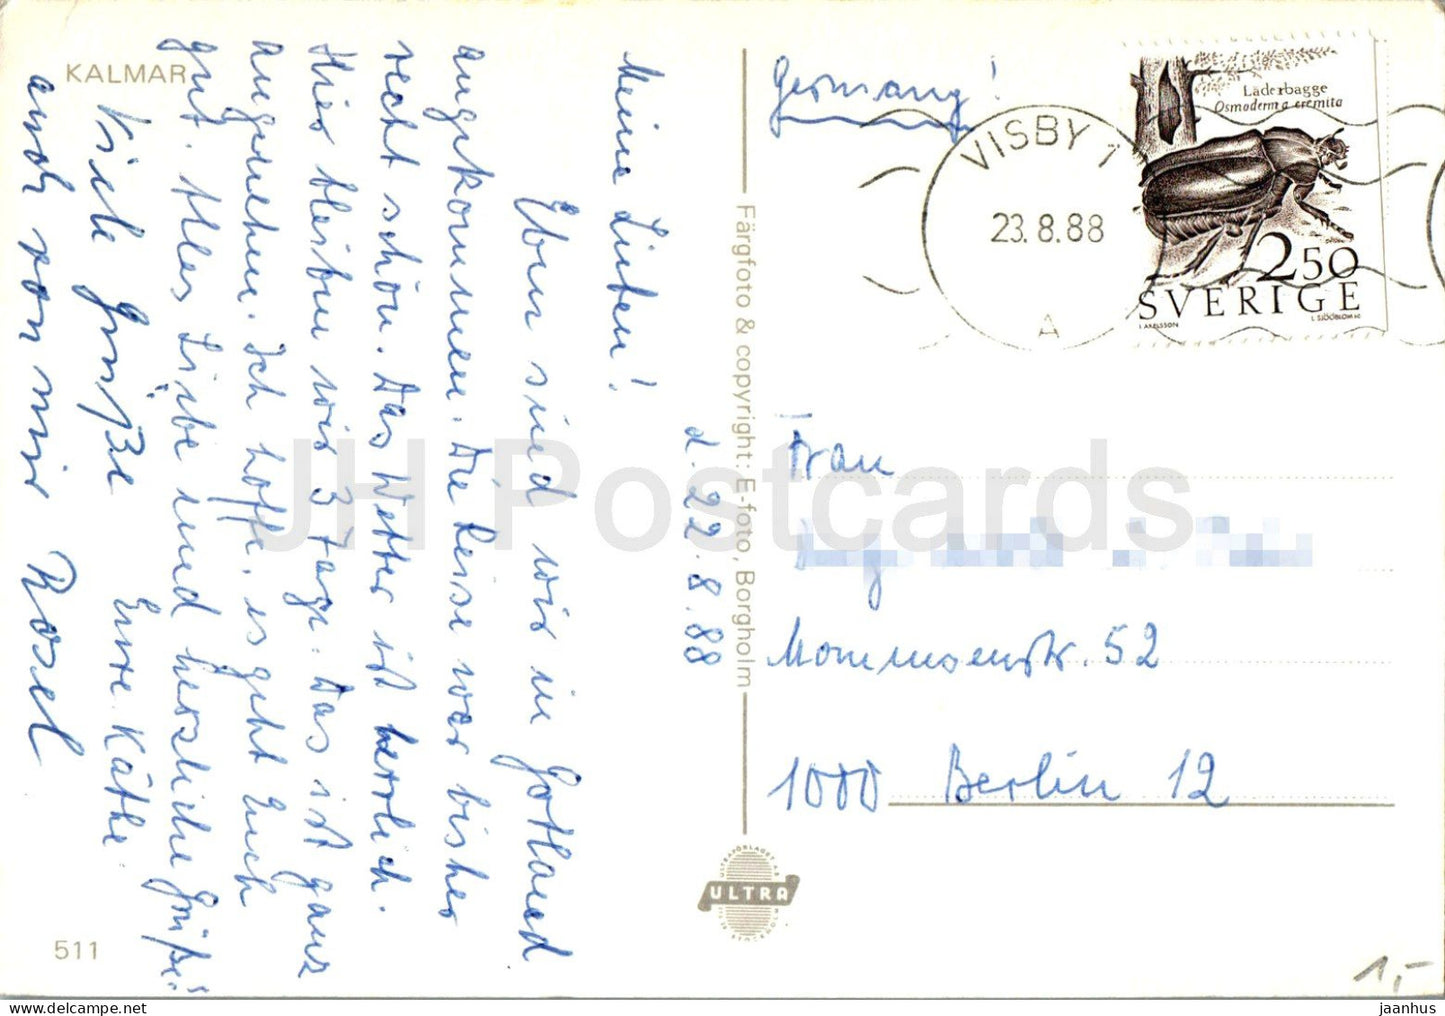 KALMAR
d. 22.8.88
Meine Lieben!
Eben sind wir in Gotland
angekommen. Die Reise war bisher
recht schön. Das Wetter ist herrlich.
Hier bleiben wir 3 Tage. Das ist ganz
angenehm. Ich hoffe, es geht Euch
gut. Alles Liebe und herzliche Grüße
Eure Käthe.
Viele Grüße
auch von mir Rosel
511
Färgfoto & copyright: E-foto, Borgholm
ULTRA
Germany!
VISBY 1
23.8.88
A
Läderbagge
Osmoderma eremita
2 50
SVERIGE
I. AXELSSON
L. SJÖÖBLOM sc
Frau
Mommsenstr. 52
1000 Berlin 12
1,-
JH Postcards
jaanhus